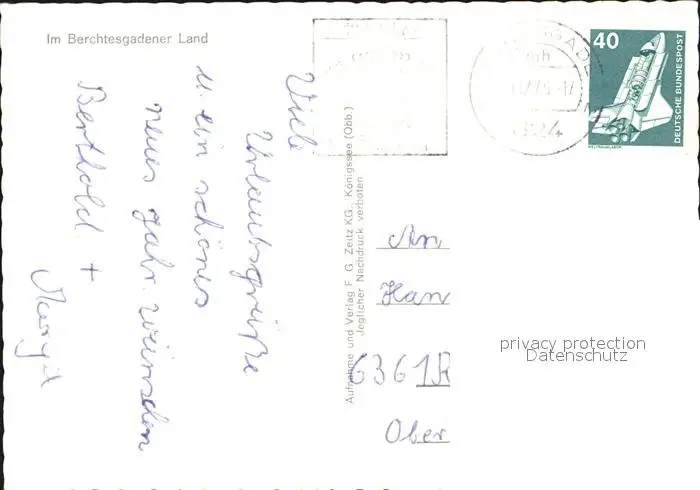 Im Berchtesgadener Land
Viele
Urlaubsgrüße
u. ein schönes
neues Jahr. wünschen
Berthold +
Margit
Aufnahme und Verlag F. G. Zeitz KG., Königssee (Obb.)
Jeglicher Nachdruck verboten
40
DEUTSCHE BUNDESPOST
WELTRAUMLABOR
An
Han
6361 R
Ober
privacy protection
Datenschutz